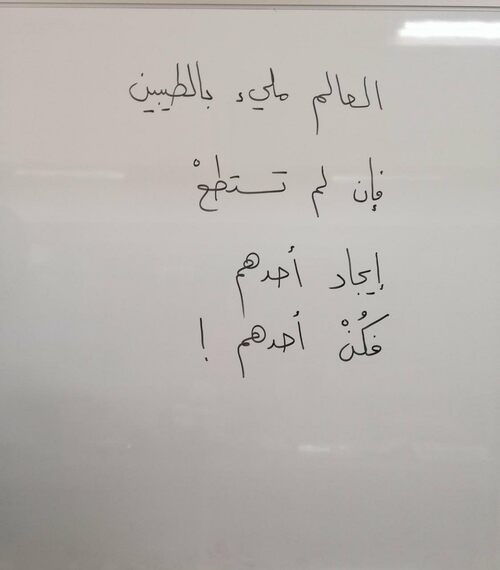 العالم مليء بالطيبين
فإن لم تستطعْ
إيجاد أحدهم
فكُنْ أحدهم !